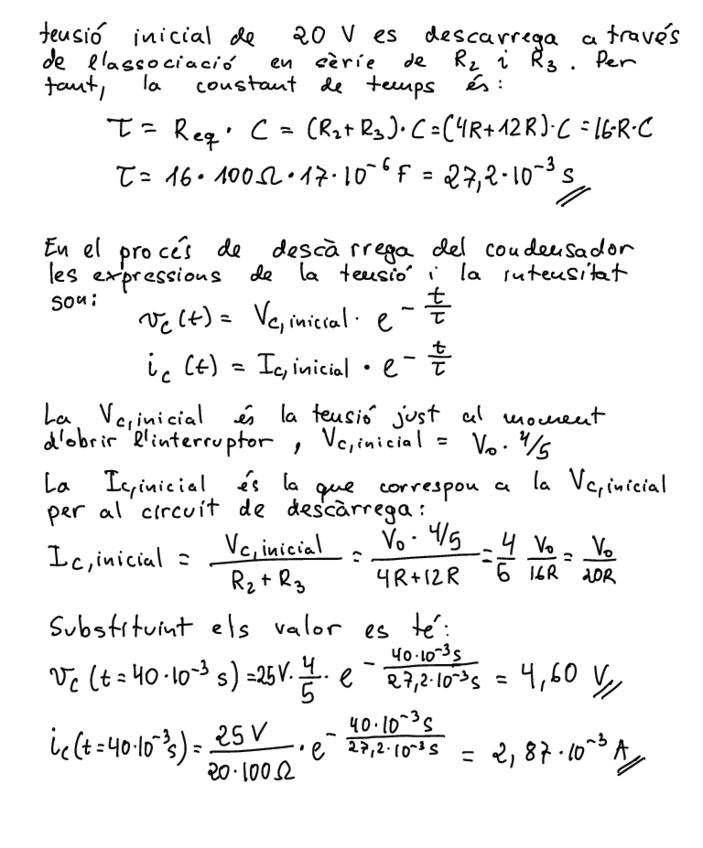 tensió inicial de 20 V es descarrega a través
de l'associació en sèrie de R₂ i R₃. Per
tant, la constant de temps és:
τ = Req · C = (R₂+R₃)·C=(4R+12R)·C=16·R·C
τ= 16·100Ω·17·10⁻⁶F = 27,2·10⁻³ s
En el procés de descàrrega del condensador
les expressions de la tensió i la intensitat
son:
v_c(t) = V_c,inicial · e^(-t/τ)
i_c (t) = I_c,inicial · e^(-t/τ)
La V_c,inicial és la tensió just al moment
d'obrir l'interruptor, V_c,inicial = V₀·4/5
La I_c,inicial és la que correspon a la V_c,inicial
per al circuit de descàrrega:
I_c,inicial = V_c,inicial/(R₂+R₃) = (V₀·4/5)/(4R+12R) = 4/5 V₀/16R = V₀/20R
Substituint els valor es té:
v_c (t=40·10⁻³ s)=25V·4/5·e^(-40·10⁻³s/27,2·10⁻³s) = 4,60 V
i_c(t=40·10⁻³s)= 25 V/(20·100Ω)·e^(-40·10⁻³s/27,2·10⁻³s) = 2,87·10⁻³ A